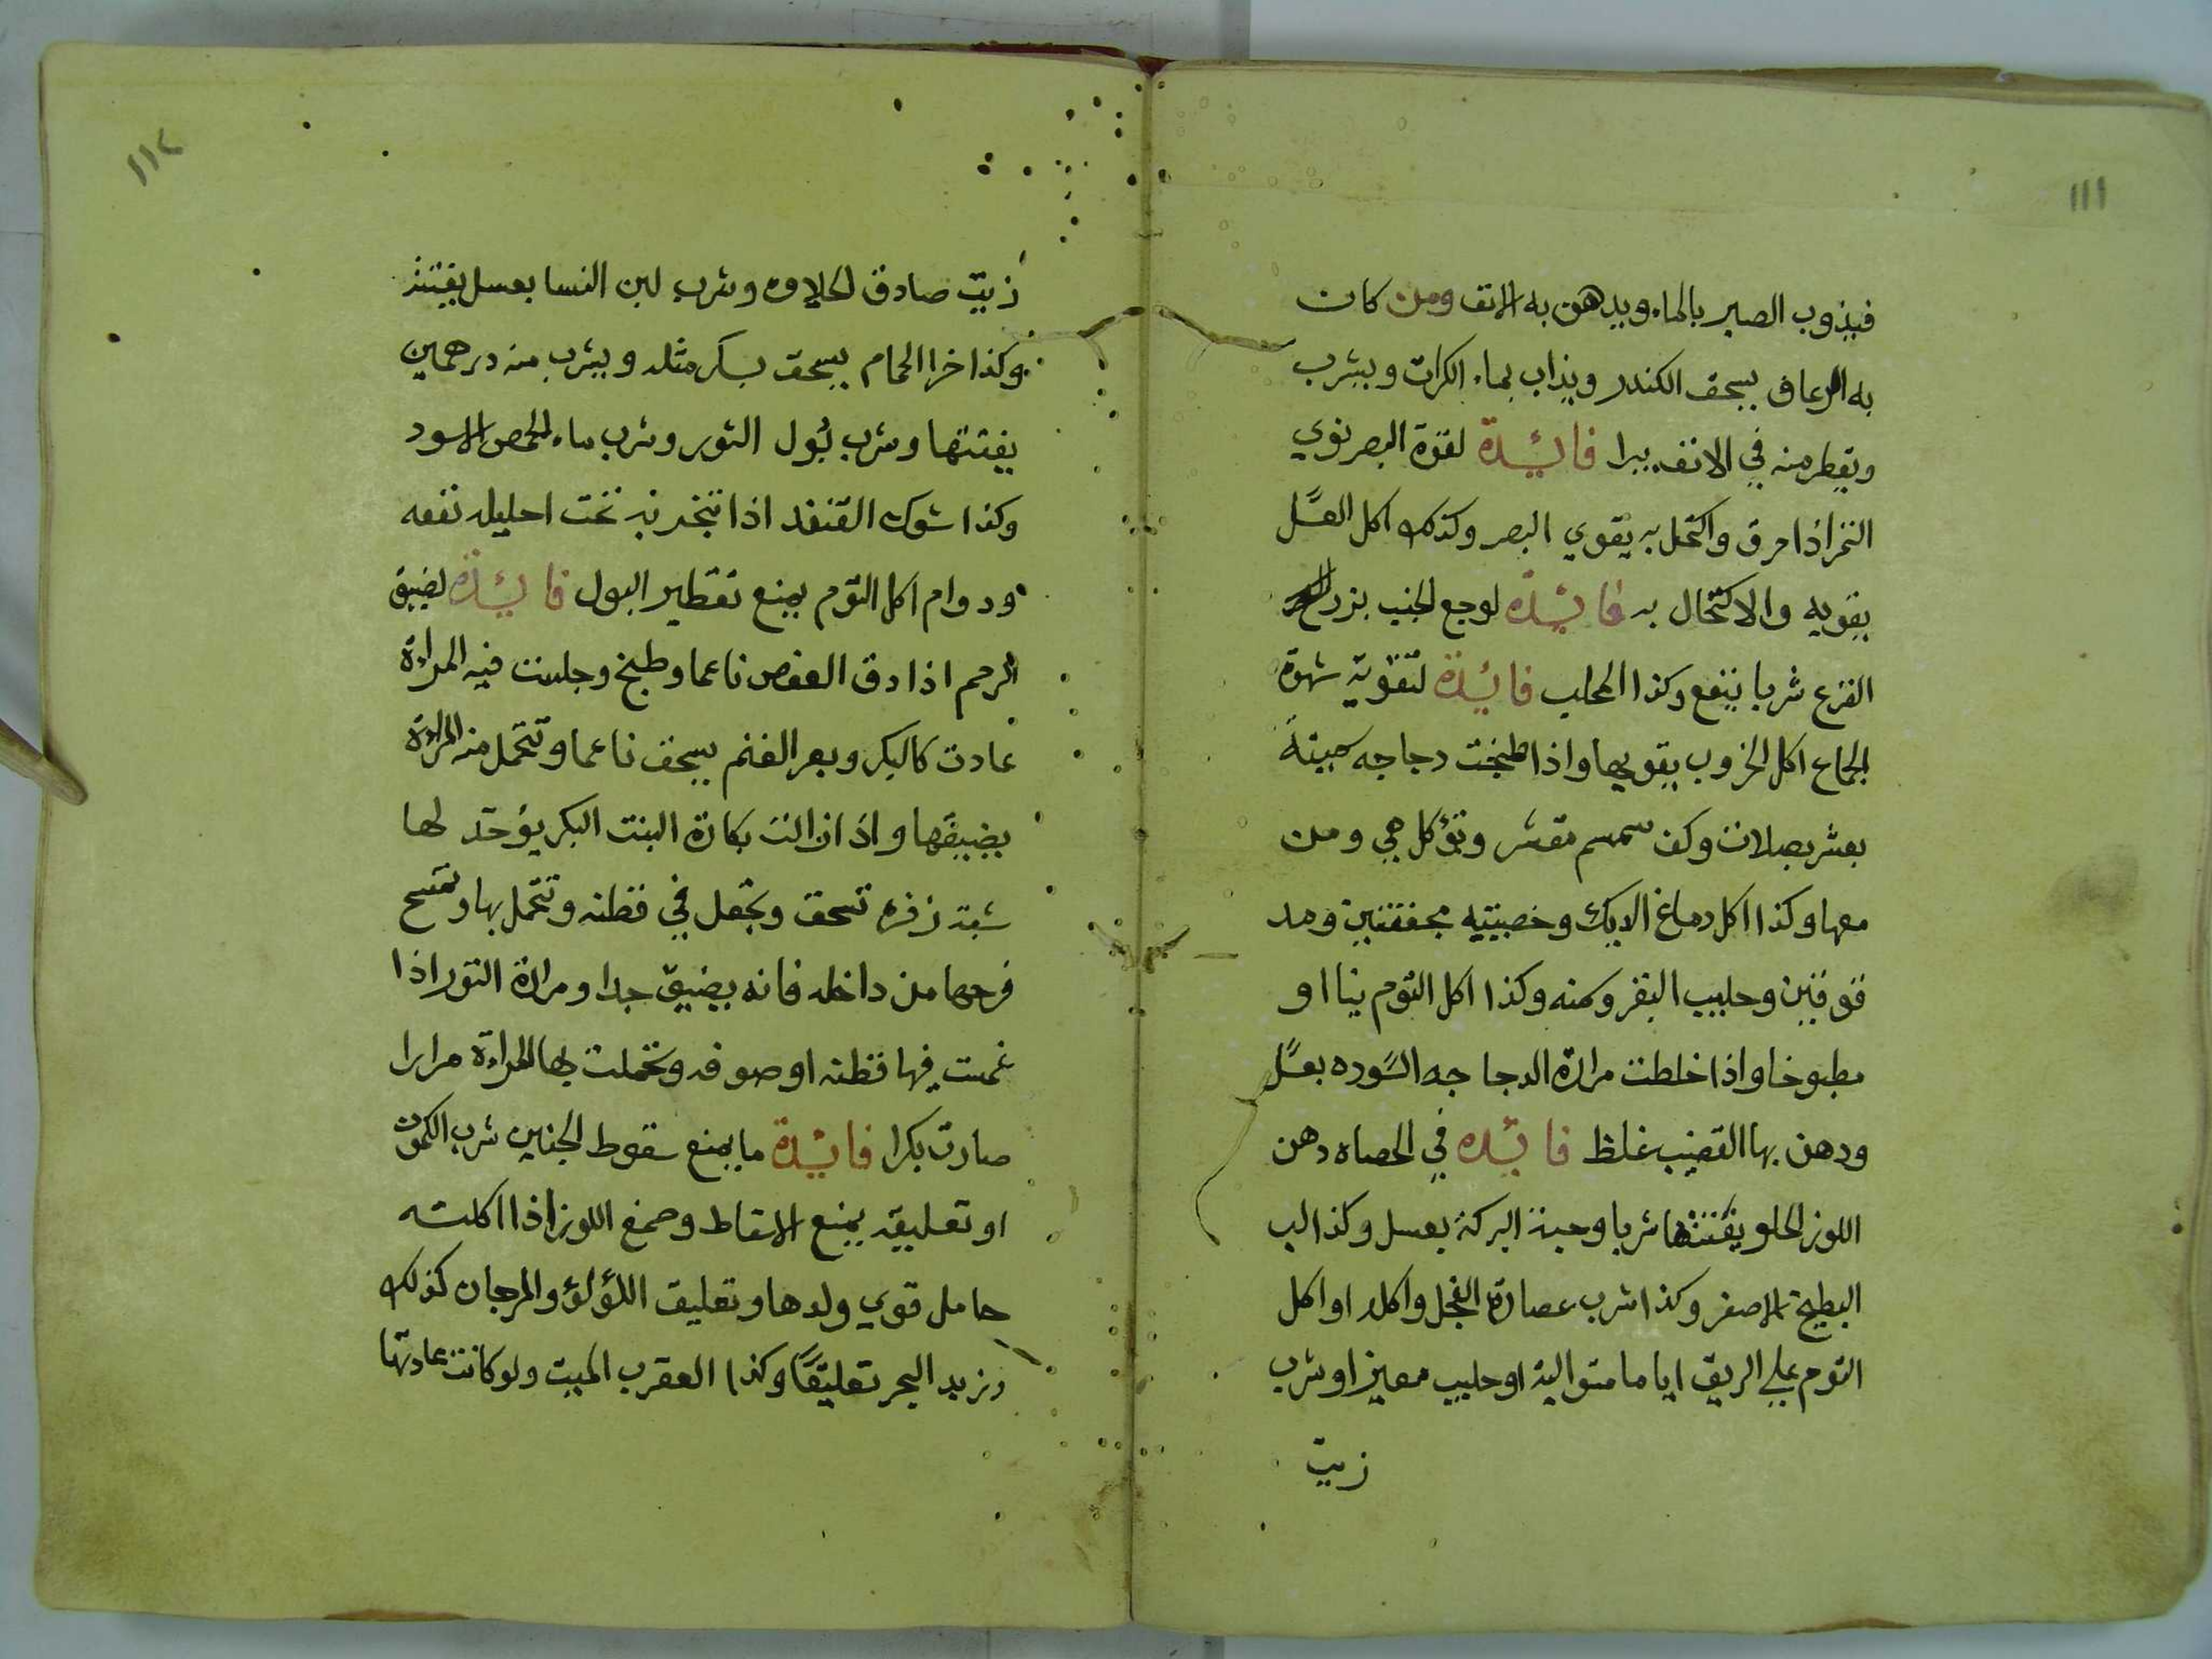 ١١١
فيذوب الصبر بالماء ويدهن به الانف ومن كان
به الرعاف يسحق الكندر ويذاب بماء الكرات ويشرب
ويقطر منه في الانف يبرا فائدة لقوة البصر نوي
التمر اذا حرق واكتحل به يقوي البصر وكذلك اكل العسل
يقويه والاكتحال به فائدة لوجع الجنب بزر
القرع شربا ينفع وكذا المحلب فائدة لتقوية شهوة
الجماع اكل الخروب يقويها واذا طبخت دجاجه سمينة
بعشر بصلات وكف سمسم مقشر وتؤكل هي ومن
معها وكذا اكل دماغ الديك وخصيتيه مجففتين ومد
قوقتين وحليب البقر وسمنه وكذا اكل التوم نيا او
مطبوخا واذا خلطت مرارة الدجاجه السوده بعسل
ودهن بها القضيب غلظ فائده في الحصاه دهن
اللوز الحلو يفتتها شربا وحبة البركة بعسل وكذا لب
البطيخ الاصفر وكذا شرب عصارة الفجل واكله او اكل
التوم علي الريق اياما متوالية او حليب معيز او شرب
زيت
١١٢
زيت صادق الحلاوه وشرب لبن النسا بعسل يفتته
وكذا خرا الحمام يسحق بسكر مثله ويشرب منه درهمين
يفتتها وشرب بول الثور وشرب ماء الحمص الاسود
وكذا شوك القنفد اذا تبخر به تحت احليله نفعه
ودوام اكل التوم يمنع تقطير البول فائدة لضيق
الرحم اذا دق العفص ناعما وطبخ وجلست فيه المراءة
عادت كالبكر وبعر الغنم يسحق ناعما وتتحمل منه المراءة
يضيقها واذا زالت بكارة البنت البكر يؤخد لها
شبة زفره تسحق وتجعل في قطنه وتتحمل بها وتمسح
فرجها من داخله فانه يضيق جدا ومرارة الثور اذا
غمست فيها قطنه او صوفه وتحملت بها المراءة مرارا
صارت بكرا فائدة ما يمنع سقوط الجنين شرب الكمون
او تعليقه يمنع الاسقاط وصمغ اللوز اذا اكلته
حامل قوي ولدها وتعليق اللؤلؤ والمرجان كذلك
وزبد البحر تعليقا وكذا العقرب الميت ولو كانت عادتها